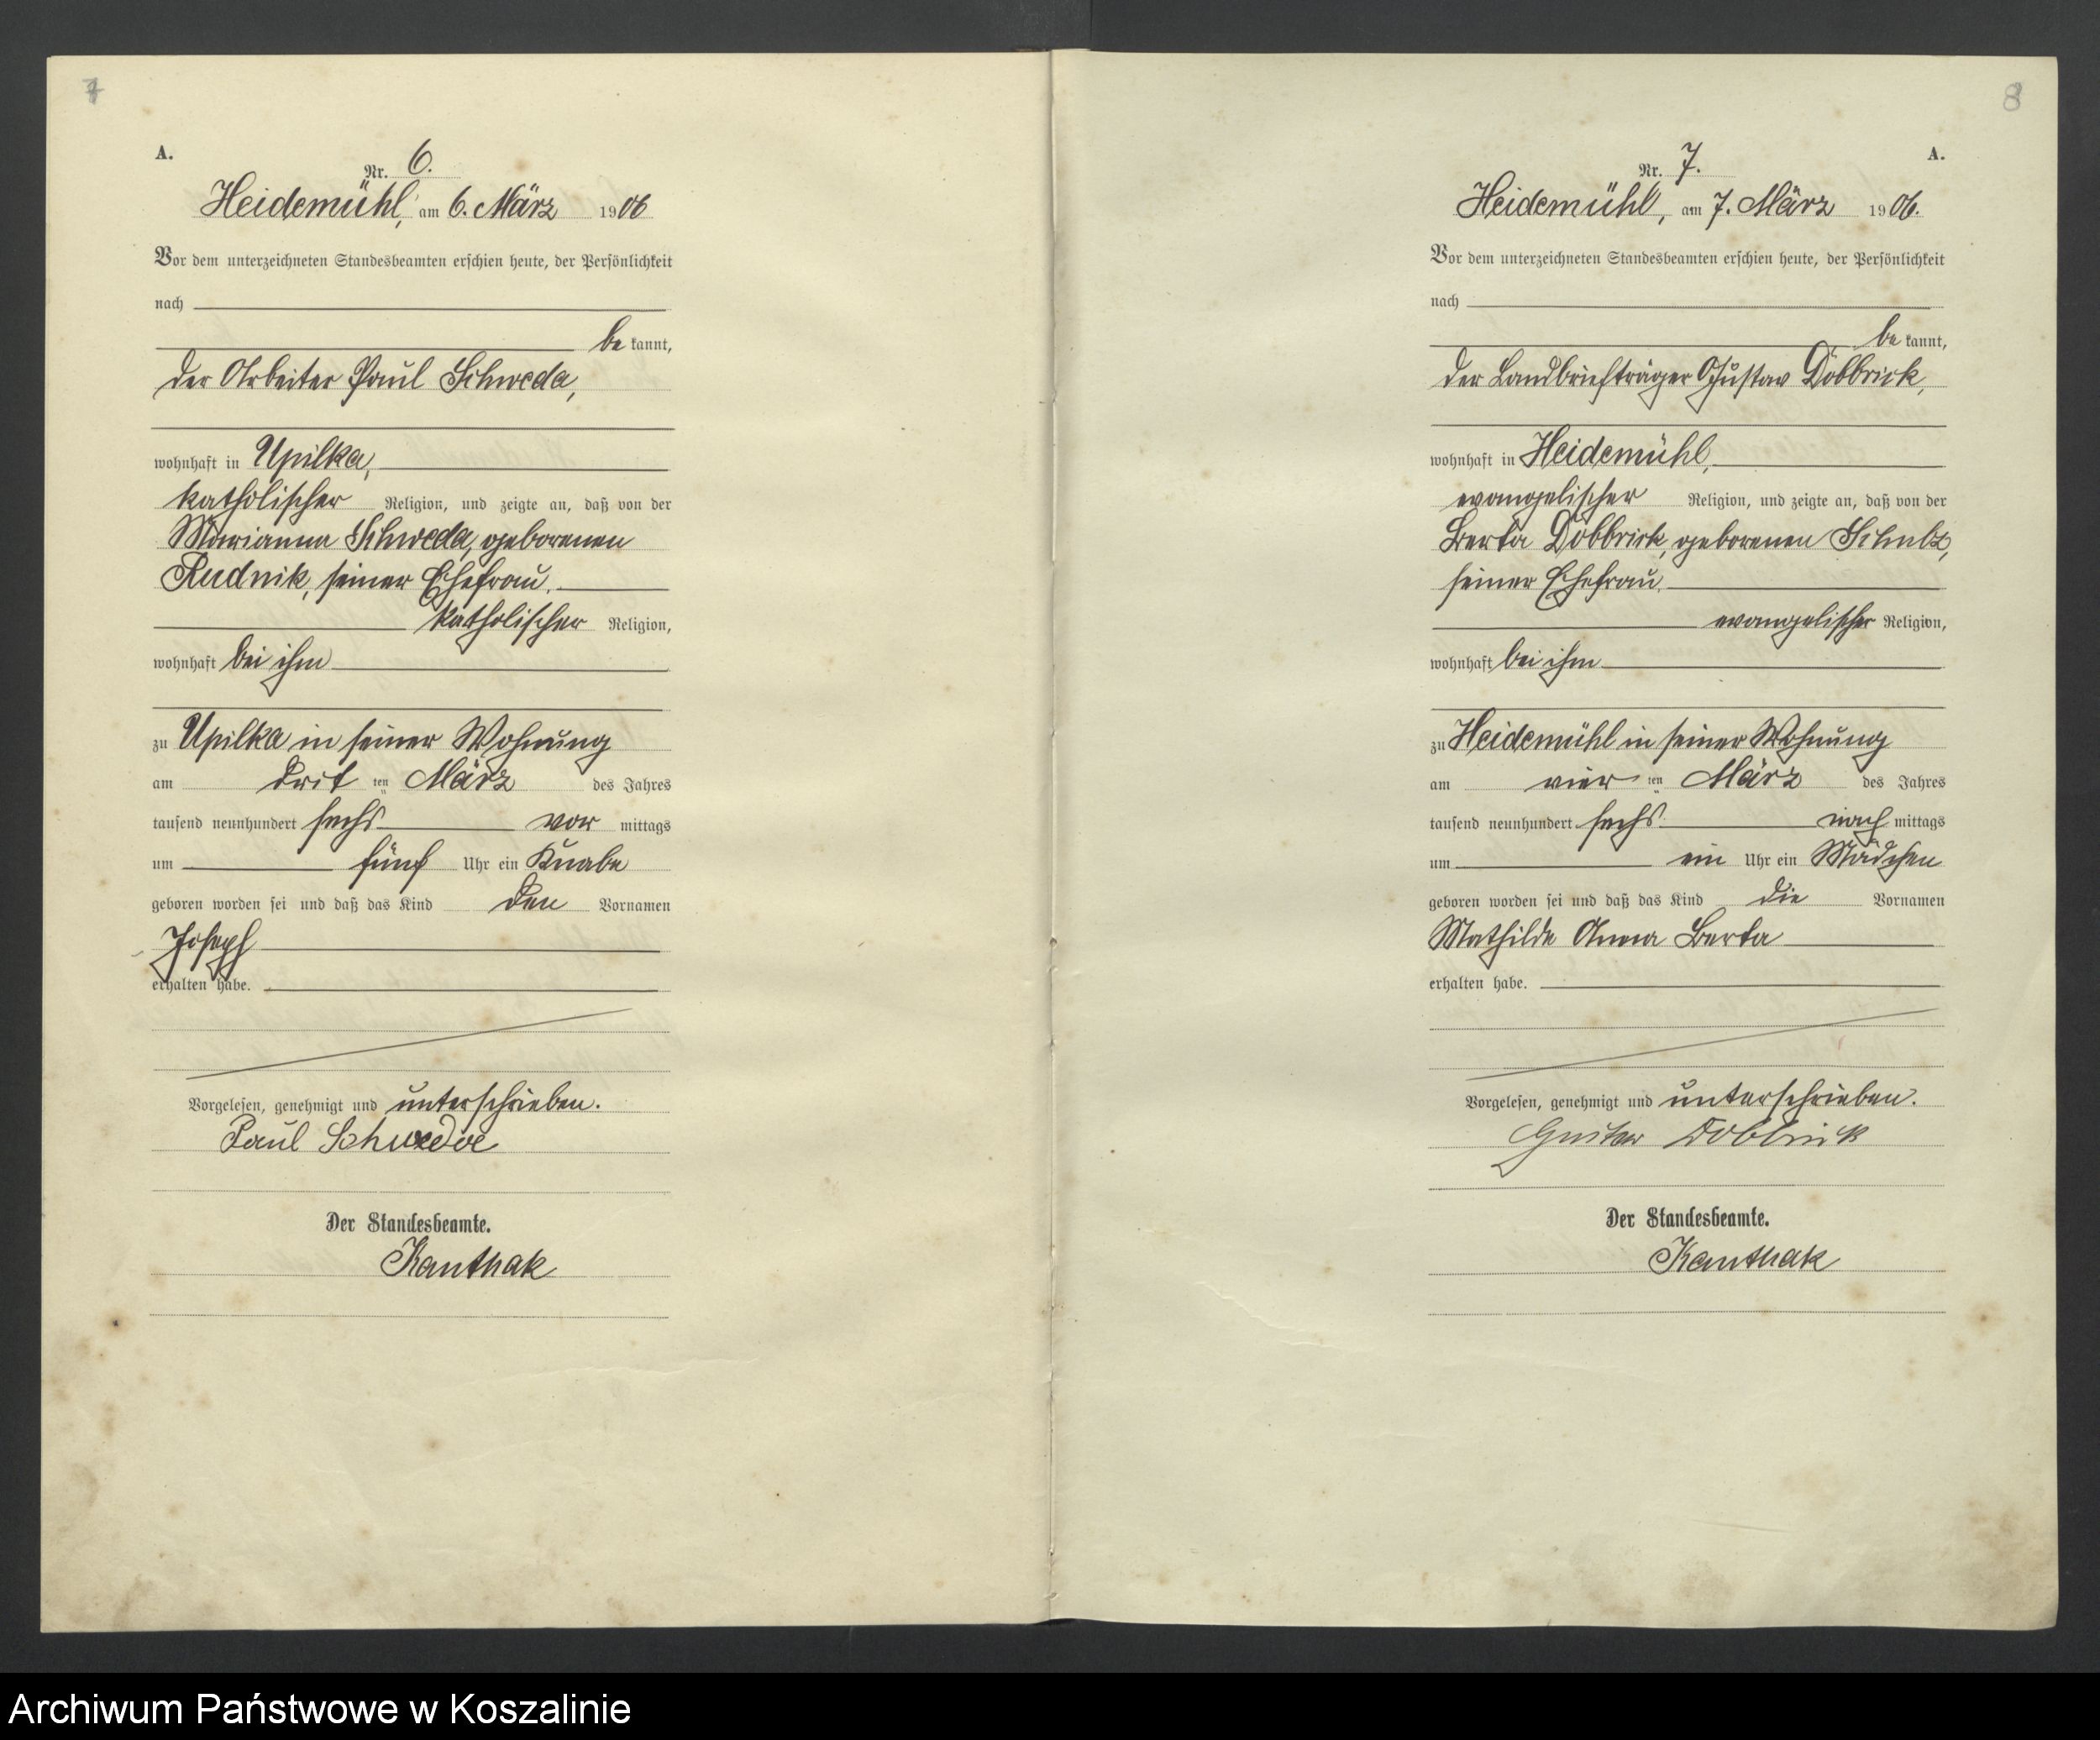 7
A.
Nr. 6.
Heidemühl, am 6. März 1906
Vor dem unterzeichneten Standesbeamten erschien heute, der Persönlichkeit
nach
be kannt,
der Arbeiter Paul Schweda,
wohnhaft in Upilka,
katholischer Religion, und zeigte an, daß von der
Marianna Schweda, geborenen
Rudnik, seiner Ehefrau,
katholischer Religion,
wohnhaft bei ihm
zu Upilka in seiner Wohnung
am drit ten März des Jahres
tausend neunhundert sechs vor mittags
um fünf Uhr ein Knabe
geboren worden sei und daß das Kind den Vornamen
Joseph
erhalten habe.
Vorgelesen, genehmigt und unterschrieben.
Paul Schweda
Der Standesbeamte.
Kanthak
8
A.
Nr. 7.
Heidemühl, am 7. März 1906.
Vor dem unterzeichneten Standesbeamten erschien heute, der Persönlichkeit
nach
be kannt,
der Landbriefträger Gustav Dobbrick,
wohnhaft in Heidemühl,
evangelischer Religion, und zeigte an, daß von der
Berta Dobbrick, geborenen Schulz,
seiner Ehefrau,
evangelischer Religion,
wohnhaft bei ihm
zu Heidemühl in seiner Wohnung
am vier ten März des Jahres
tausend neunhundert sechs nach mittags
um ein Uhr ein Mädchen
geboren worden sei und daß das Kind die Vornamen
Mathilde Anna Berta
erhalten habe.
Vorgelesen, genehmigt und unterschrieben.
Gustav Dobbrick
Der Standesbeamte.
Kanthak
Archiwum Państwowe w Koszalinie